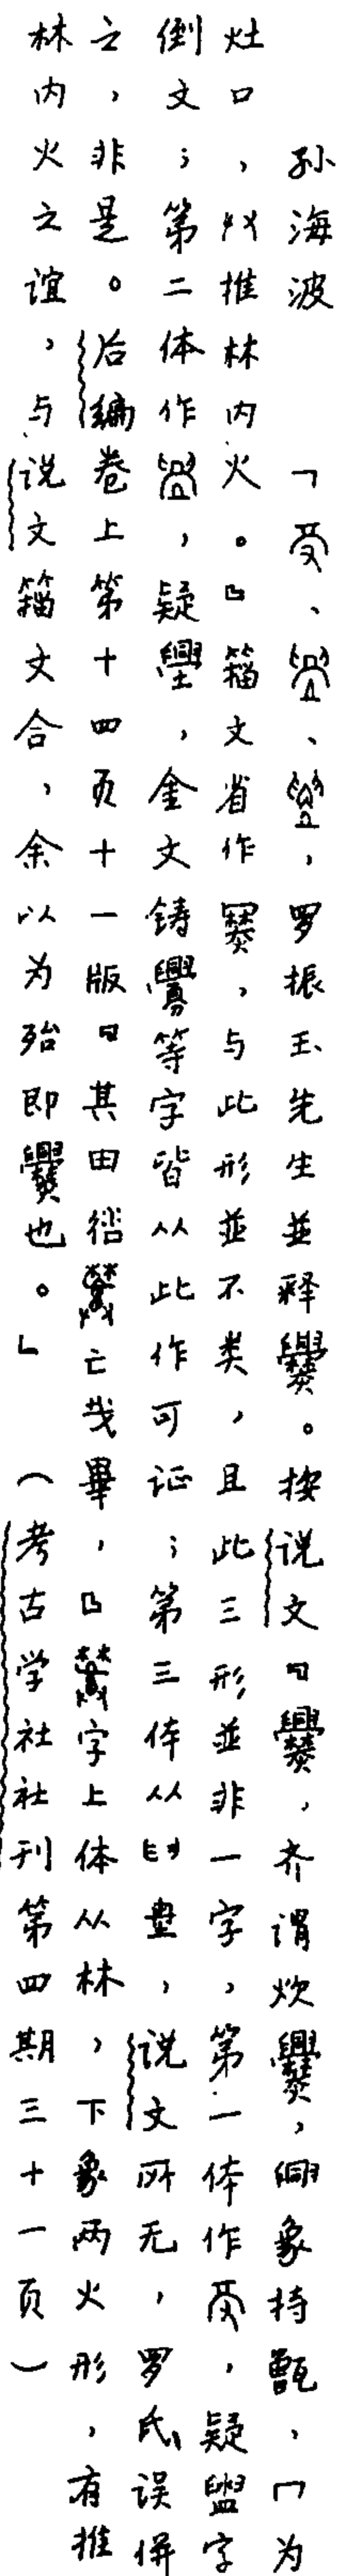 孙海波 「、、，罗振玉先生並释爨。按说文『爨，齐谓炊爨，象持甑，冂为
灶口，𠬞推林内火。』籀文省作，与此形並不类，且此三形並非一字，第一体作，疑盥字
倒文；第二体作，疑，金文铸等字皆从此作可证；第三体从，说文所无，罗氏误併
之，非是。后编卷上第十四页十一版『其田亡𢦏畢，』字上体从林，下象两火形，有推
林内火之谊，与说文籀文合，余以为殆即爨也。」（考古学社社刊第四期三十一页）